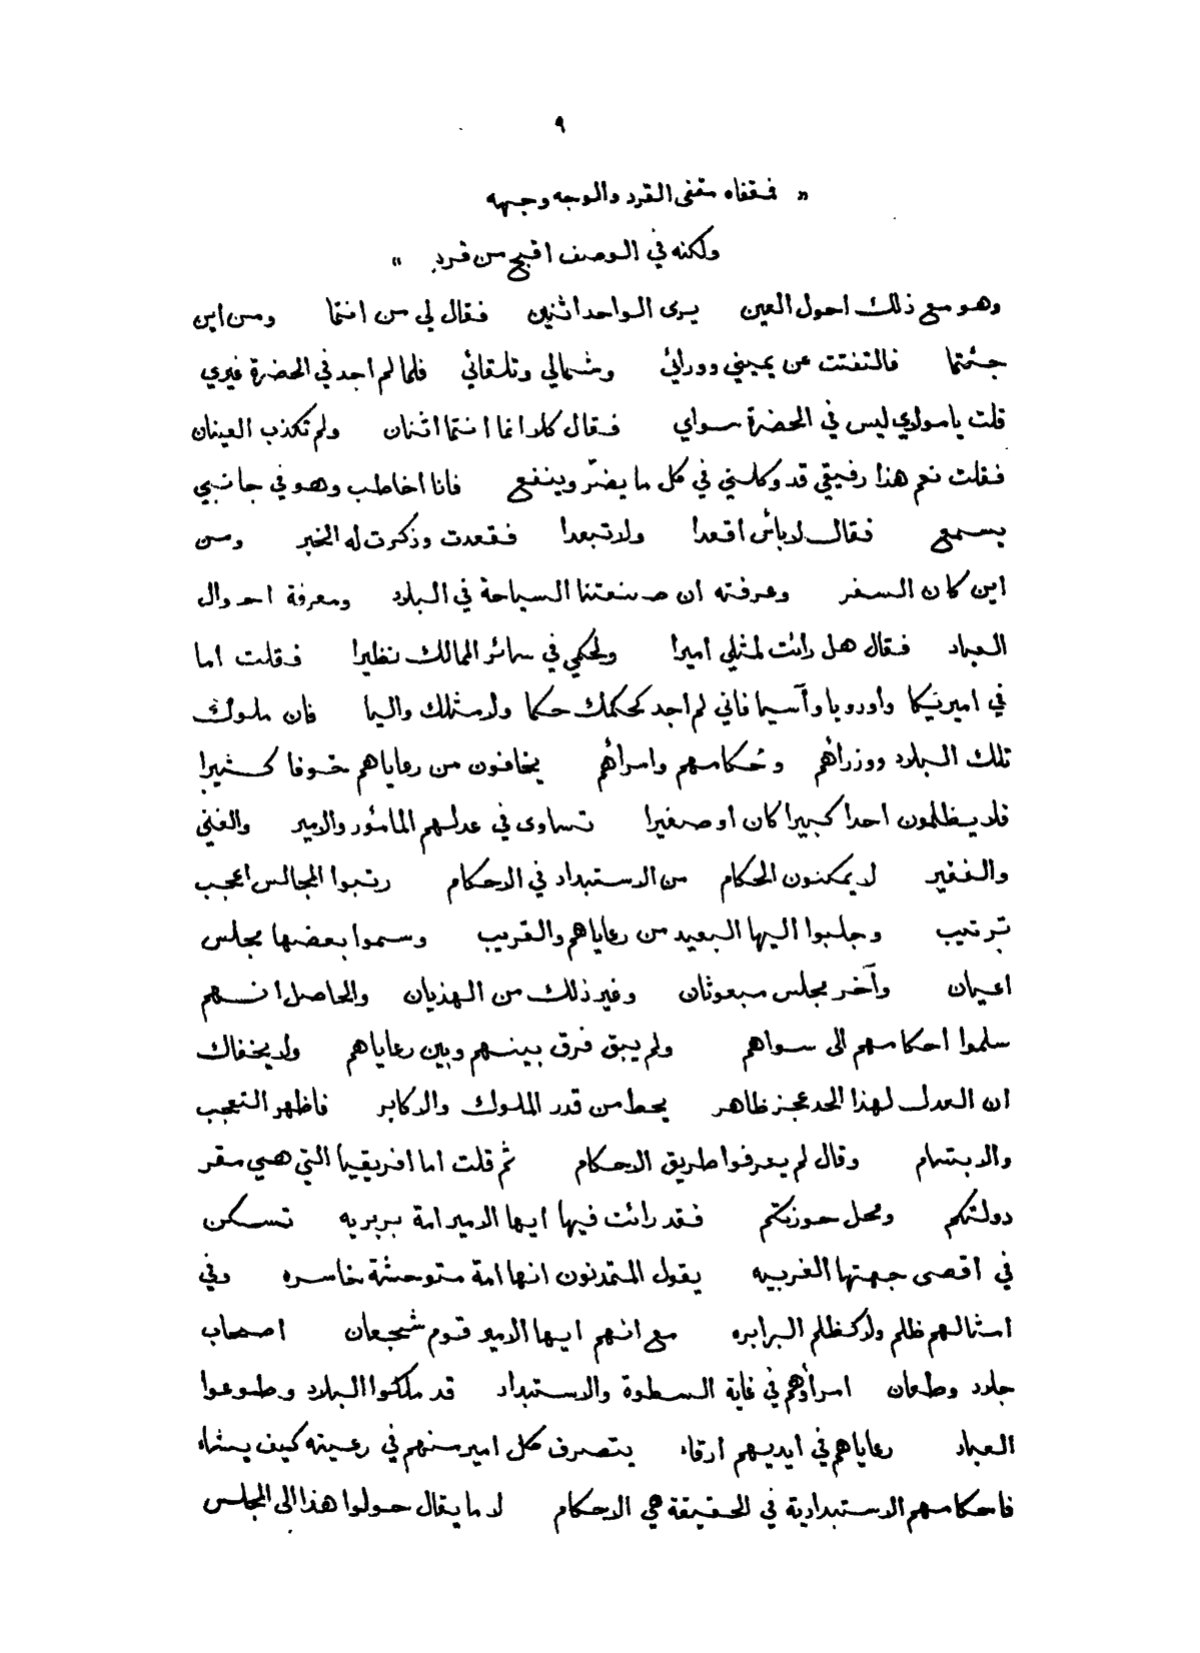 ٩
« فقفاه مقفى القرد والوجه وجهه
ولكنه في الوصف اقبح من قرد »
وهو مع ذلك احول العين يرى الواحد اثنين فقال لي من انتما ومن اين
جئتما فالتفتت عن يميني وورائي وشمالي وتلقائي فلما لم اجد في الحضرة غيري
قلت يا مولاي ليس في الحضرة سواي فقال كلا انما انتما اثنان ولم تكذب العينان
فقلت نعم هذا رفيقي قد وكلني في كل ما يضرّ وينفع فانا اخاطب وهو في جانبي
يسمع فقال لا بأس اقعدا ولا تبعدا فقعدت وذكرت له الخبر ومن
اين كان السفر وعرفته ان صنعتنا السياحة في البلاد ومعرفة احوال
العباد فقال هل رائت لمثلي اميرا ولحكمي في سائر الممالك نظيرا فقلت اما
في اميريكا وأوروبا وآسيا فاني لم أجد كحكمك حكما ولا مثلك واليا فان ملوك
تلك البلاد ووزرائهم وحُكامهم وامرائهم يخافون من رعاياهم خوفا كثيرا
فلا يظلمون احدا كبيرا كان او صغيرا تساوى في عدلهم المأمور والامير والغني
والفقير لا يمكنون الحكام من الاستبداد في الاحكام رتبوا المجالس اعجب
ترتيب وجلبوا اليها البعيد من رعاياهم والقريب وسموا بعضها مجلس
اعيان وآخر مجلس مبعوثان وغير ذلك من الهذيان والحاصل انهم
سلموا أحكامهم الى سواهم ولم يبق فرق بينهم وبين رعاياهم ولا يخفاك
ان العدل لهذا الحد عجز ظاهر يحط من قدر الملوك والاكابر فاظهر التعجب
والابتسام وقال لم يعرفوا طريق الاحكام ثم قلت اما افريقيا التي هي مقر
دولتكم ومحل حوزتكم فقد رائت فيها ايها الامير امة بربريه تسكن
في اقصى جهتها الغربيه يقول المتمدنون انها امة متوحشة خاسره وفي
امثالهم ظلم ولا كظلم البرابره مع انهم ايها الامير قوم شجعان اصحاب
جلاد وطعان امراؤهم في غاية السطوة والاستبداد قد ملكوا البلاد وطوعوا
العباد رعاياهم في ايديهم ارقاء يتصرف كل امير منهم في رعيته كيف يشاء
فاحكامهم الاستبدادية في الحقيقة هي الاحكام لا ما يقال حولوا هذا الى المجلس